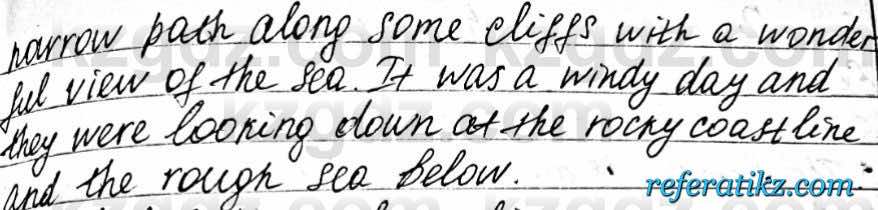 narrow path along some cliffs with a wonder
ful view of the sea. It was a windy day and
they were looking down at the rocky coastline
and the rough sea below.
referatikz.com